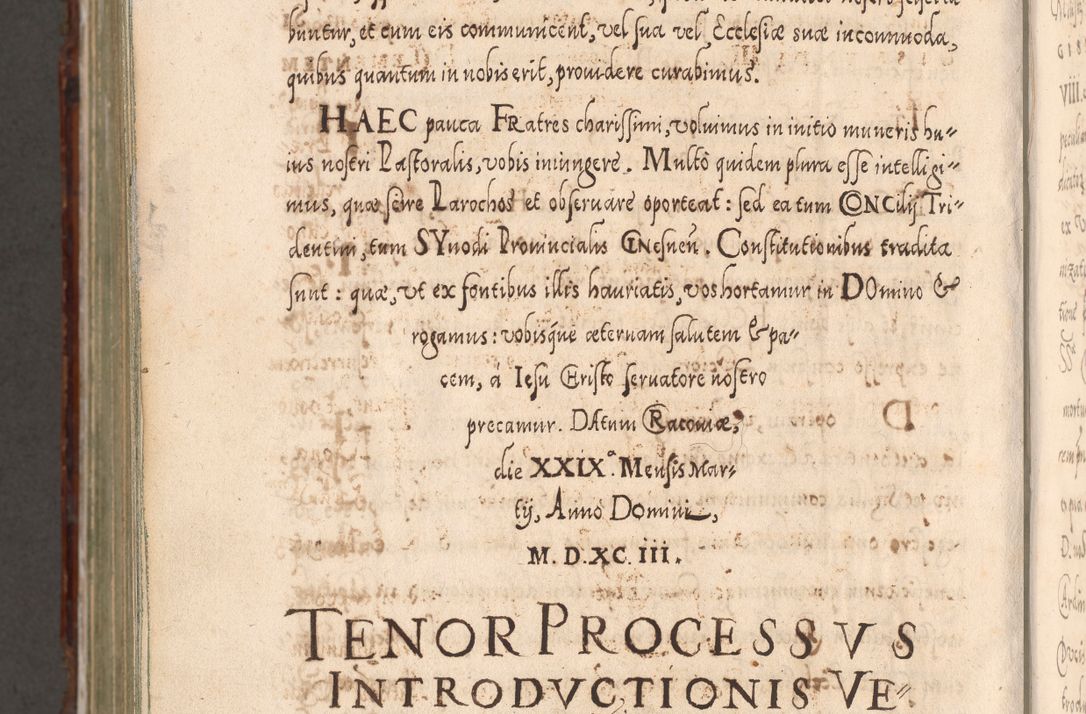 buntur, et cum eis communicent, vel sua vel Ecclesiæ suæ incommoda,
quibus quantum in nobis erit, providere curabimus.
HAEC pauca FRatres charissimi, voluimus in initio muneris hu=
ius nostri Pastoralis, vobis iniungere. Multo quidem plura esse intelligi=
mus, quæ scire Parochos et observare oporteat: sed ea tum CONCilij Tri=
dentini, tum SYnodi Provincialis GNesnen̄. Constitutionibus tradita
sunt: quæ, vt ex fontibus illis hauriatis, vos hortamur in DOmino &
rogamus: vobisque æternam salutem & pa=
cem, à Iesu Christo servatore nostro
precamur. DAtum Cracoviæ,
die XXIXª. Mensis Mar=
tij, Anno Domini,
M. D. XC. III.
TENOR PROCESSVS
INTRODVCTIONIS VE=
viii.